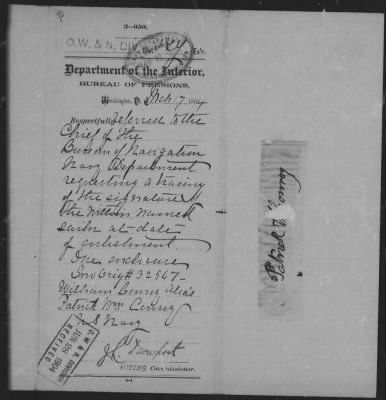 3-050.
O. W. & N. DIV.
Ex'r.
Department of the Interior,
BUREAU OF PENSIONS,
Washington, D. C., 7, 1904
Respectfully referred to the
Chief of the
Bureau of Navigation
Navy Department
requesting a tracing
of the signature of
the within named
sailor at date
of enlistment
One enclosure
Inv Orig # 32967-
William Alias
Patrick Wm
U S Navy
Davenport
ACTING Commissioner.
O. W. & N. DIVISION
JUN 25 1904
RECEIVED
Patrick W.